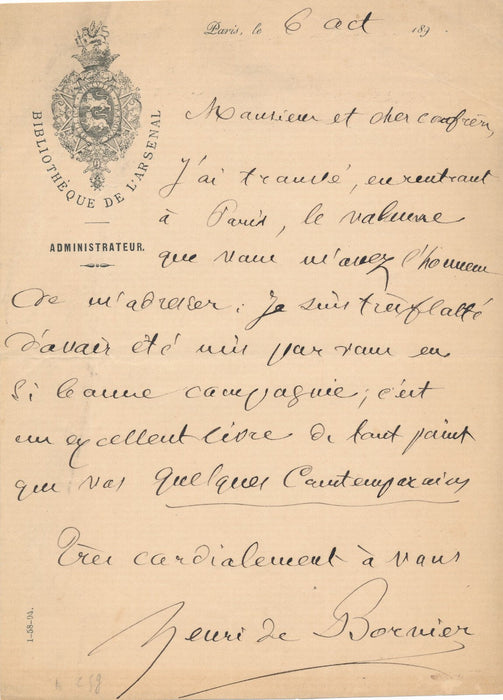 Paris, le 6 oct 189 .
BIBLIOTHÈQUE DE L'ARSENAL
ADMINISTRATEUR.
Monsieur et cher confrère
J'ai trouvé, en rentrant
à Paris, le volume
que vous m'avez l'honneur
de m'adresser ; je suis très flatté
d'avoir été mis par vous en
si bonne compagnie ; c'est
un excellent livre de tout point
que vos Quelques Contemporains
Très cordialement à vous
Henri de Bornier
1-58-94.